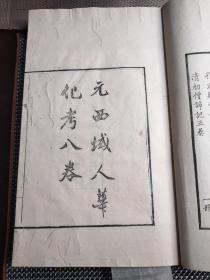 元西域人華
化考八卷
清初僧諍記三卷
一冊